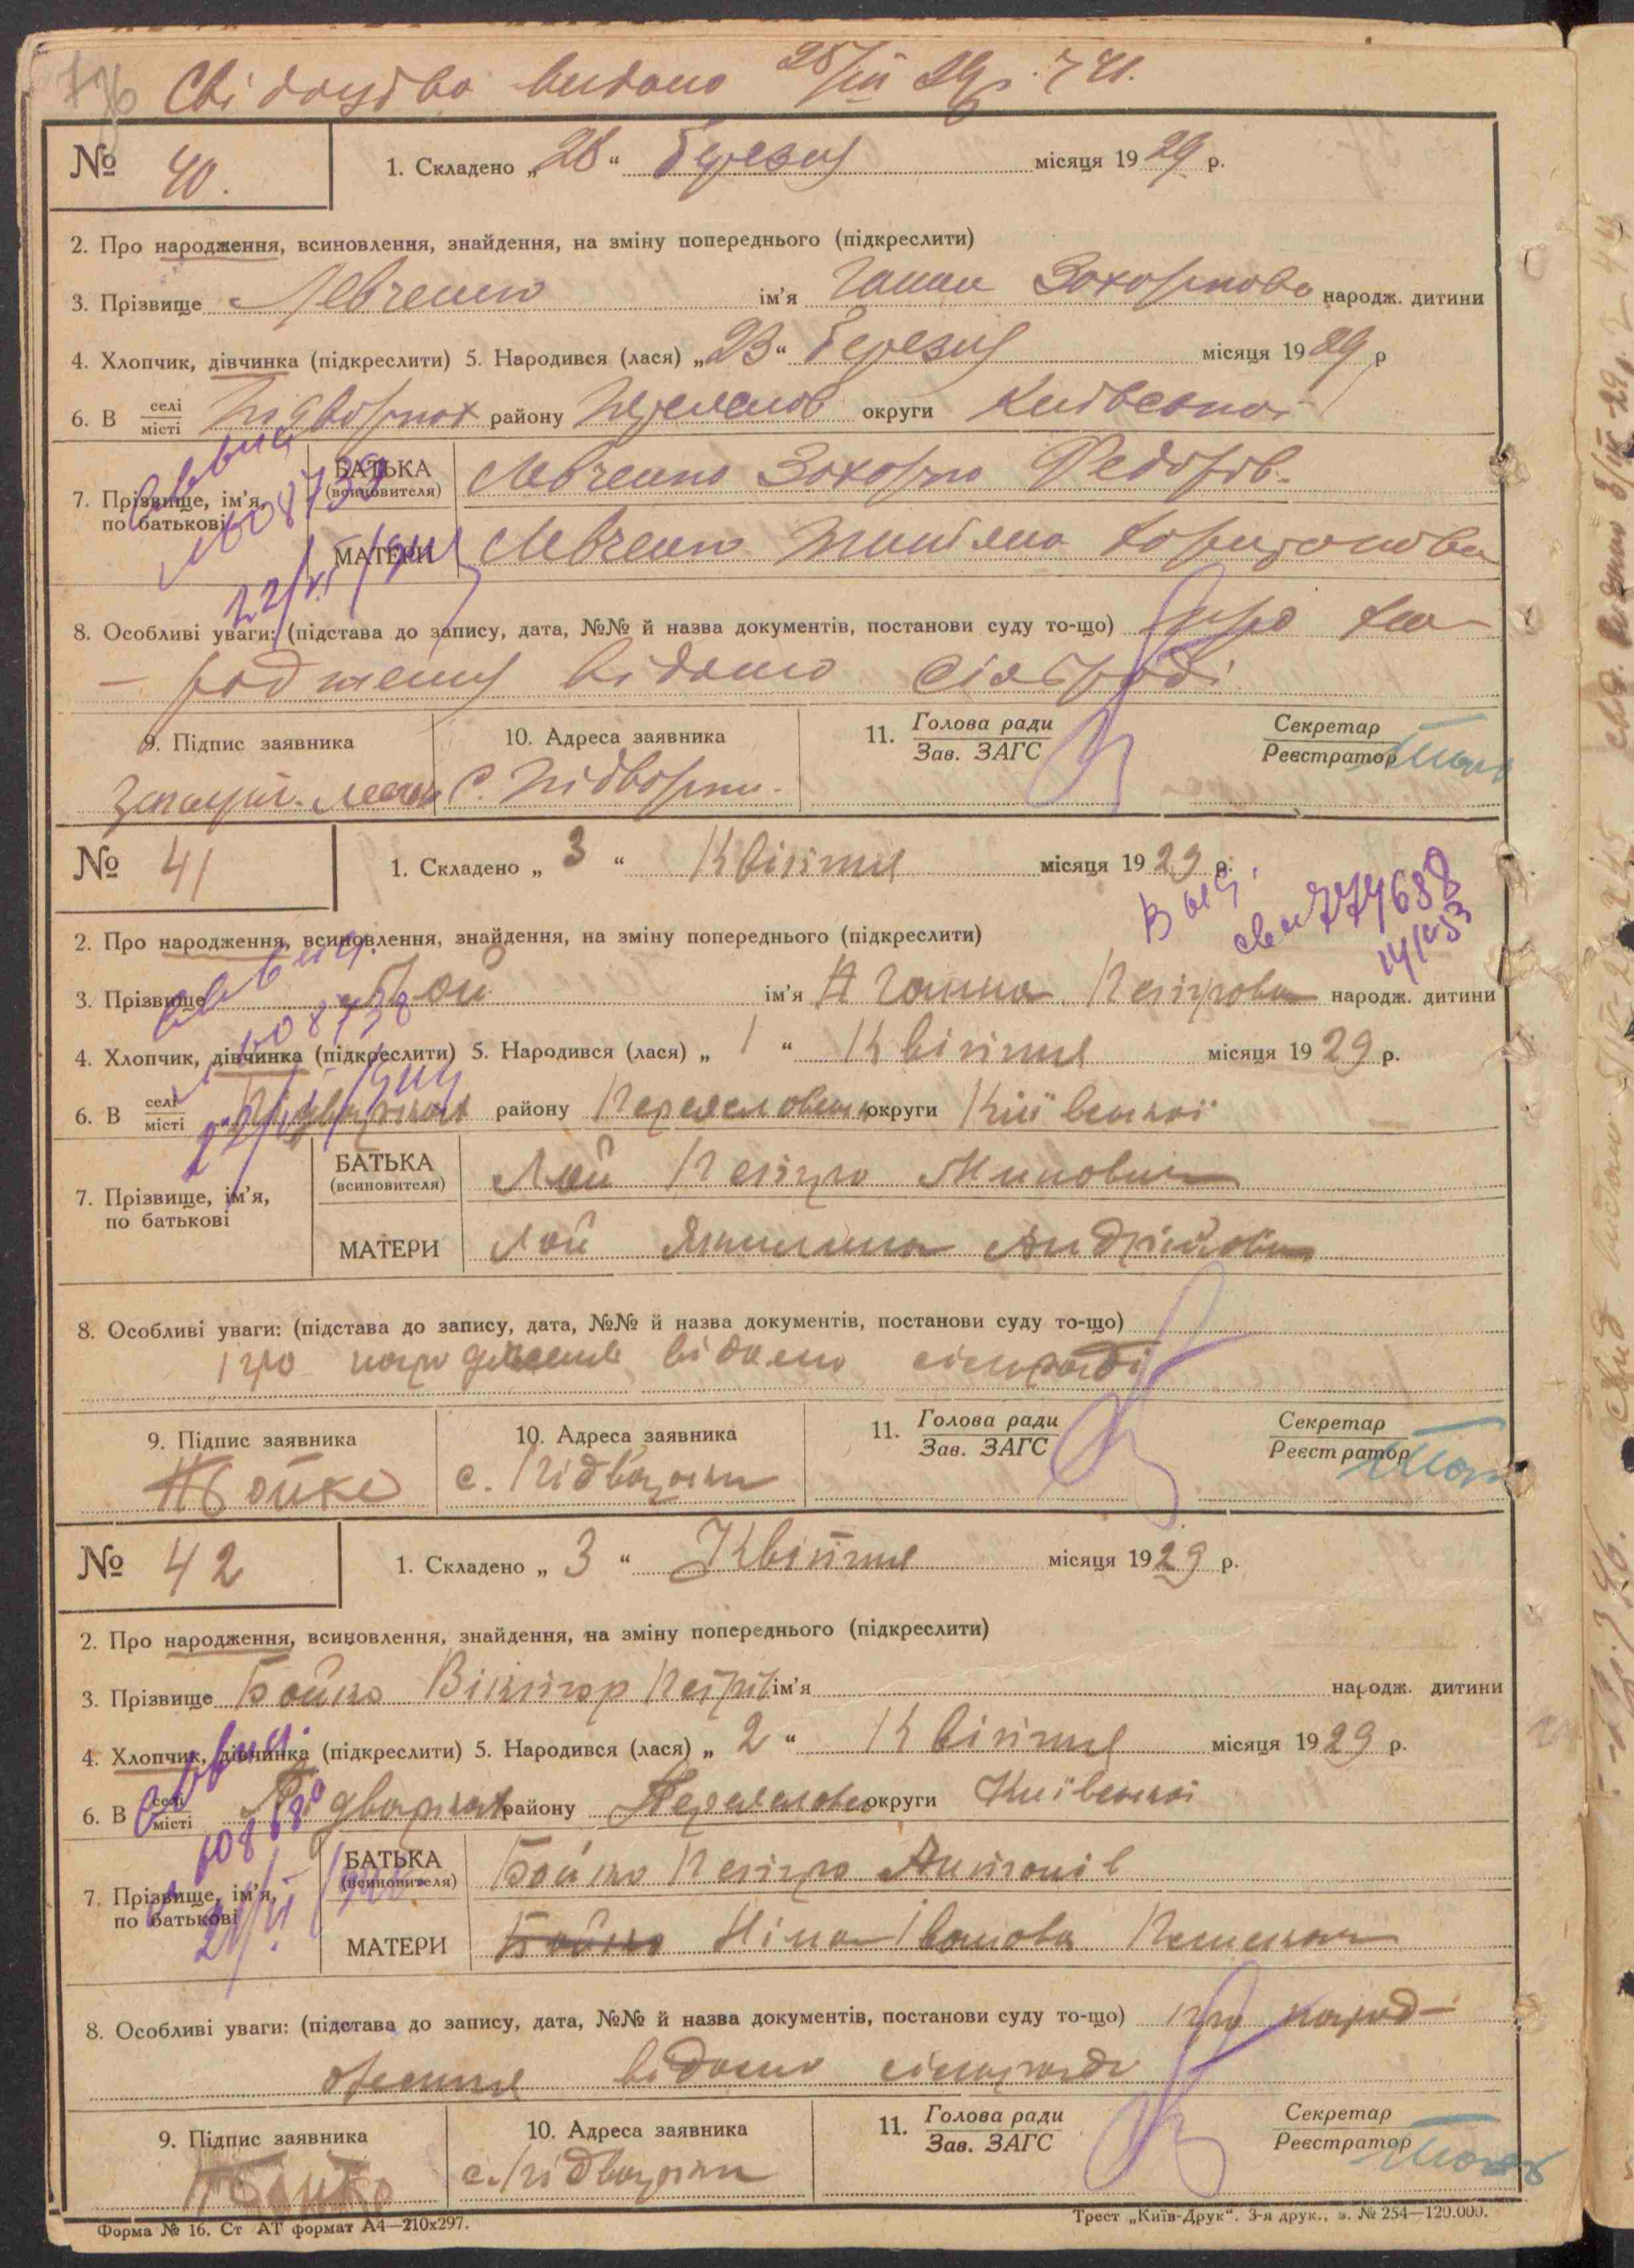 Свідоцтво видано 28/III 29 р.
№ 40.
1. Складено „28“ березня місяця 1929 р.
2. Про народження, всиновлення, знайдення, на зміну попереднього (підкреслити)
3. Прізвище Левченко ім'я Ганна Захаркова народж. дитини
4. Хлопчик, дівчинка (підкреслити) 5. Народився (лася) „23“ березня місяця 1929 р
6. В селі місті Підворках району Переяслов округи Київської
7. Прізвище, ім'я, по батькові
БАТЬКА (всиновителя) Левченко Захарко Федорів.
МАТЕРИ Левченко
22/VI
8. Особливі уваги: (підстава до запису, дата, №№ й назва документів, постанови суду то-що) про на-
родження відомо сільраді
9. Підпис заявника
10. Адреса заявника
11. Голова ради Зав. ЗАГС
Секретар Реєстратор
с. Підворки.
№ 41
1. Складено „ 3 “ Квітня місяця 1929 р.
774688
2. Про народження, всиновлення, знайдення, на зміну попереднього (підкреслити)
3. Прізвище Лой ім'я Ганна Петрова народж. дитини
4. Хлопчик, дівчинка (підкреслити) 5. Народився (лася) „ 1 “ Квітня місяця 1929 р.
6. В селі місті Підварках району Переясловськ округи Київської
7. Прізвище, ім'я, по батькові
БАТЬКА (всиновителя) Лой Петро
МАТЕРИ Лой Андріївна
8. Особливі уваги: (підстава до запису, дата, №№ й назва документів, постанови суду то-що)
про народження відомо сільраді
9. Підпис заявника
10. Адреса заявника
11. Голова ради Зав. ЗАГС
Секретар Реєстратор
с. Підварки
№ 42
1. Складено „ 3 “ Квітня місяця 1929 р.
2. Про народження, всиновлення, знайдення, на зміну попереднього (підкреслити)
3. Прізвище Бойко Віктор Петрів ім'я народж. дитини
4. Хлопчик, дівчинка (підкреслити) 5. Народився (лася) „ 2 “ Квітня місяця 1929 р.
6. В селі місті Підварках району Переяслово округи Київської
7. Прізвище, ім'я, по батькові
БАТЬКА (всиновителя) Бойко Петро Антонів
МАТЕРИ Бойко Ніна Іванова
8. Особливі уваги: (підстава до запису, дата, №№ й назва документів, постанови суду то-що) про народ-
ження відомо сільраді
9. Підпис заявника
10. Адреса заявника
11. Голова ради Зав. ЗАГС
Секретар Реєстратор
Бойко
с. Підварки
Форма № 16. Ст АТ формат А4—210х297.
Трест „Київ-Друк“. 3-я друк., з. № 254—120.000.